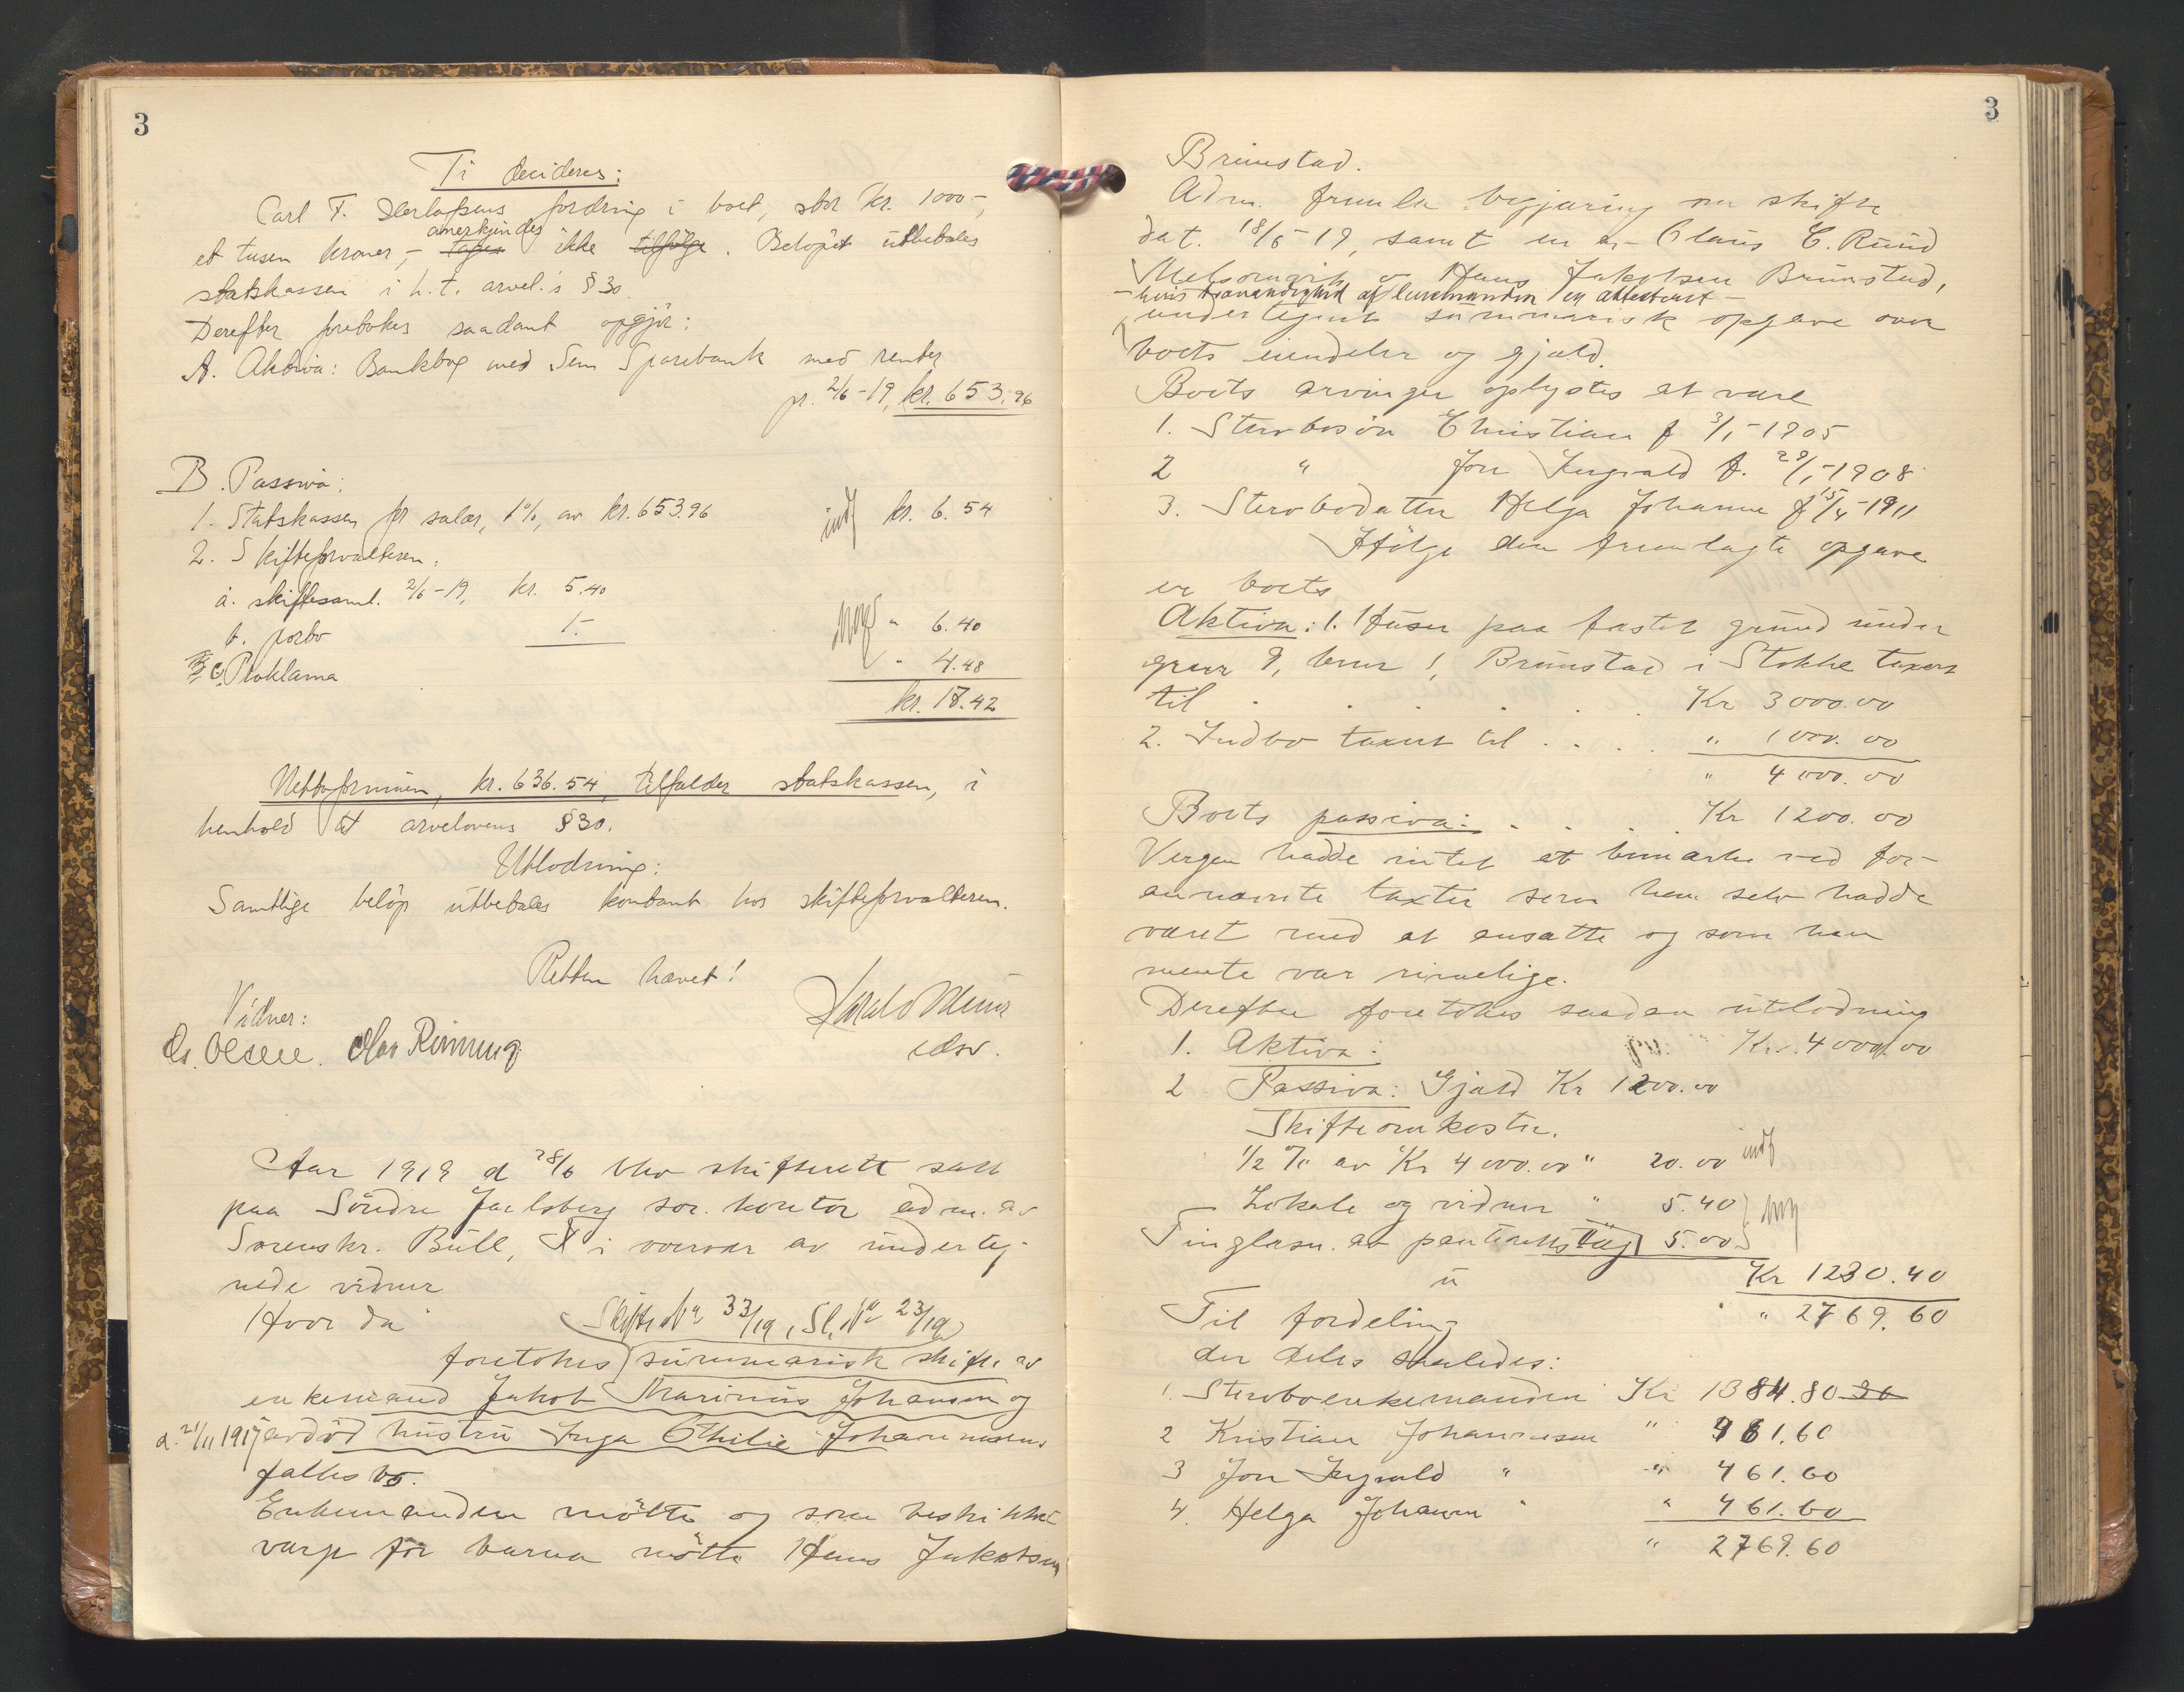 3
Ti decideres:
Carl F. fordring i boet, stor kr. 1000-,
anerkjendes
et tusen kroner, - tages ikke tilfølge. Beløpet utbetales
statskassen i h.t. arvel.s § 30.
Derefter foretokes saadant opgjör:
A. Aktiva: Bankbog med Sem Sparebank med renter
pr. 2/6-19, kr. 653.96
B. Passiva:
1. Statskassen for salær, 1%, av kr. 653.96 indf kr. 6.54
2. Skifteforvalteren:
a. skiftesaml. 2/6-19, kr. 5.40
b. porto 1.- " 6.40
c. Proklama " 4.48
kr. 17.42
Nettoformuen, kr. 636.54, tilfalder statskassen, i
henhold til arvelovens § 30.
Utlodning:
Samtlige beløp utbetales kontant hos skifteforvalteren.
Retten hævet!
Vidner:
Os. Olsen. Olav Rinnung.
edsv.
Aar 1919 d 28/6 blev skifterett satt
paa Söndre Jarlsberg sor. kontor adm. av
Sorenskr. Bull, i overvær av underteg-
nede vidner
Hvor da Skifte No 33/19, Sl. No 23/19
foretokes summarisk skifte av
enkemand Jakob Marinius Johansen og
d. 21/11 1917 avdöd hustru Inga Othilie Johannesens
fælles bo.
Enkemanden mötte og som beskikket
verge for barna mötte Hans Jakobsen
3
Brunstad.
Adm. fremla begjæring om skifte
dat. 18/6-19, samt en av Claus C. Ruud
Melsomvik og Hans Jakobsen Brunstad,
- hvis troværdighed af lensmanden er attestert -
undertegnet summarisk opgave over
boets eiendeler og gjæld.
Boets arvinger oplystes at være
1. Stervbosön Christian f 3/1-1905
2 " Jon Ingvald f. 29/1-1908
3. Stervbodatter Helga Johanne f 15/4-1911
Ifölge den fremlagte opgave
er boets
Aktiva: 1. Huser paa fæstet grund under
gnr 9, bnr 1, Brunstad i Stokke taxert
til . . . . . . Kr 3000.00
2. Indbo taxert til . . . . " 1000.00
" 4000.00
Boets passiva: . . . . Kr 1200.00
Vergen hadde intet at bemærke ved for-
annævnte taxter som han selv hadde
været med at ansætte og som han
mente var rimelige.
Derefter foretokes saadan utlodning
1. Aktiva: Kr. 4000.00
2 Passiva: Gjæld Kr 1200.00
Skifteomkostn.
1/2 % av Kr 4000.00 " 20.00 indf
Lokale og vidner " 5.40
Tinglæsn. av 5.00
Kr 1230.40
Til fordeling " 2769.60
der deles saaledes:
1. Stervboenkemanden Kr 1384.80
2 Kristian Johannesen " 461.60
3 Jon Ingvald " " 461.60
4. Helga Johanne " " 461.60
" 2769.60